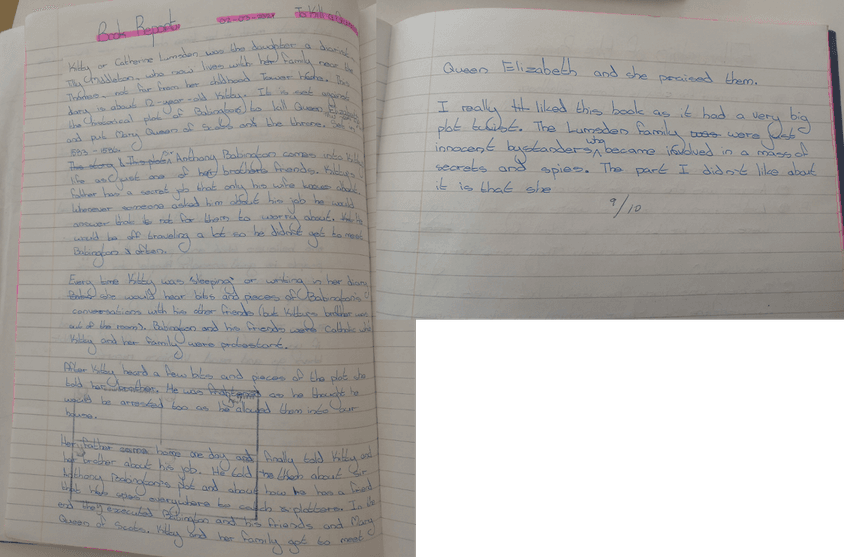 Book Report 02-03-2021 To Kill a Queen
Kitty or Catherine Lumsden was the daughter a
who now lives with her family near the
Thames, not far from her childhood Tower This
diary is about 12-year-old Kitty. It is set against
the (historical plot of Babington) to kill Queen
and put Mary Queen of Scots and the throne. Set
1583-1586.
The story & This plot Anthony Babington comes into Kitty's
life as just one of her brothers friends. Kitty's
father has a secret job that only his wife knows about.
Whenever someone asked him about his job he would
answer that to not for them to worry about.
would be off traveling a lot so he didn't get to meet
Babington often.
Every time Kitty was "sleeping" or writing in her diary
she would hear bits and pieces of (Babington's
conversations with his other friends (but Kitty's brother was
out of the room). Babington and his friends were Catholic while
Kitty and her family were protestant.
After Kitty heard a few bits and pieces of the plot she
told her brother. He was as he thought he
would be arrested too as he alowed them into our
house.
Her father came home one day and finally told Kitty and
her brother about his job. He told the them about Sir
Anthony Babington's plot and about how he has a friend
that has spies everywhere to catch plotters. In the
end they executed Babington and his friends and Mary
Queen of Scots. Kitty and her family got to meet
Queen Elizabeth and she peraised them.
I really liked this book as it had a very big
plot twist. The Lumsden family was were just
innocent bystanders who became involved in a mass of
secrets and spies. The part I didn't like about
it is that she
9/10